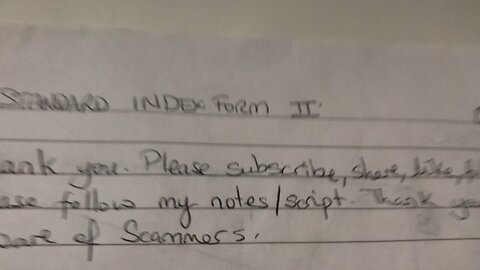 STANDARD INDEX FORM II
ank you. Please subscribe, share, like,
ase follow my notes/script. Thank
ware of Scammers.